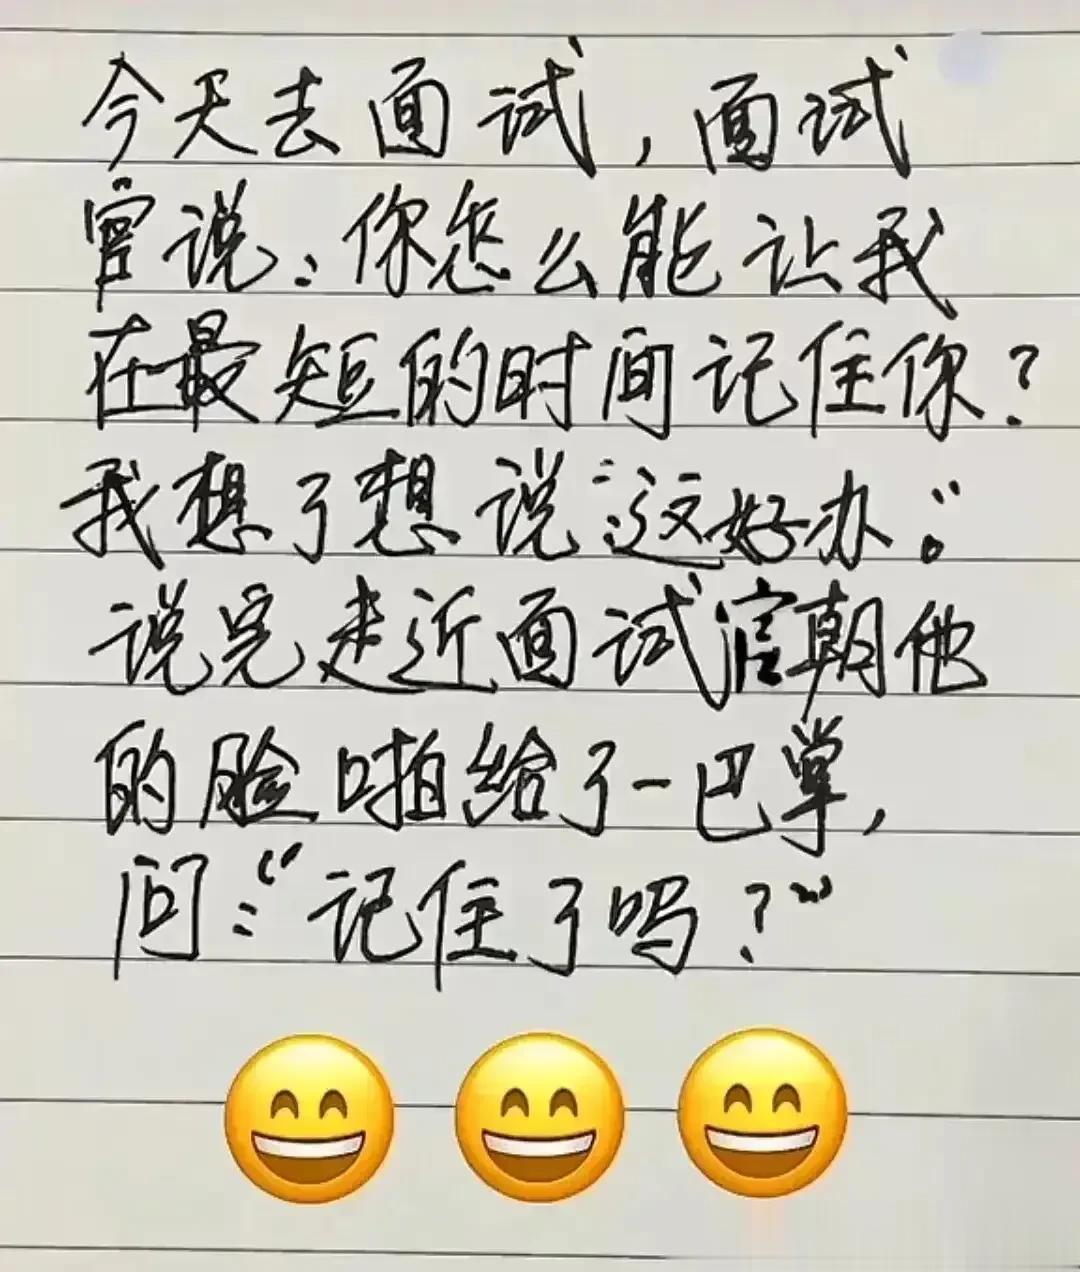 今天去面试，面试
官说：你怎么能让我
在最短的时间记住你？
我想了想说“这好办。”
说完走近面试官朝他
的脸啪给了一巴掌，
问：“记住了吗？”